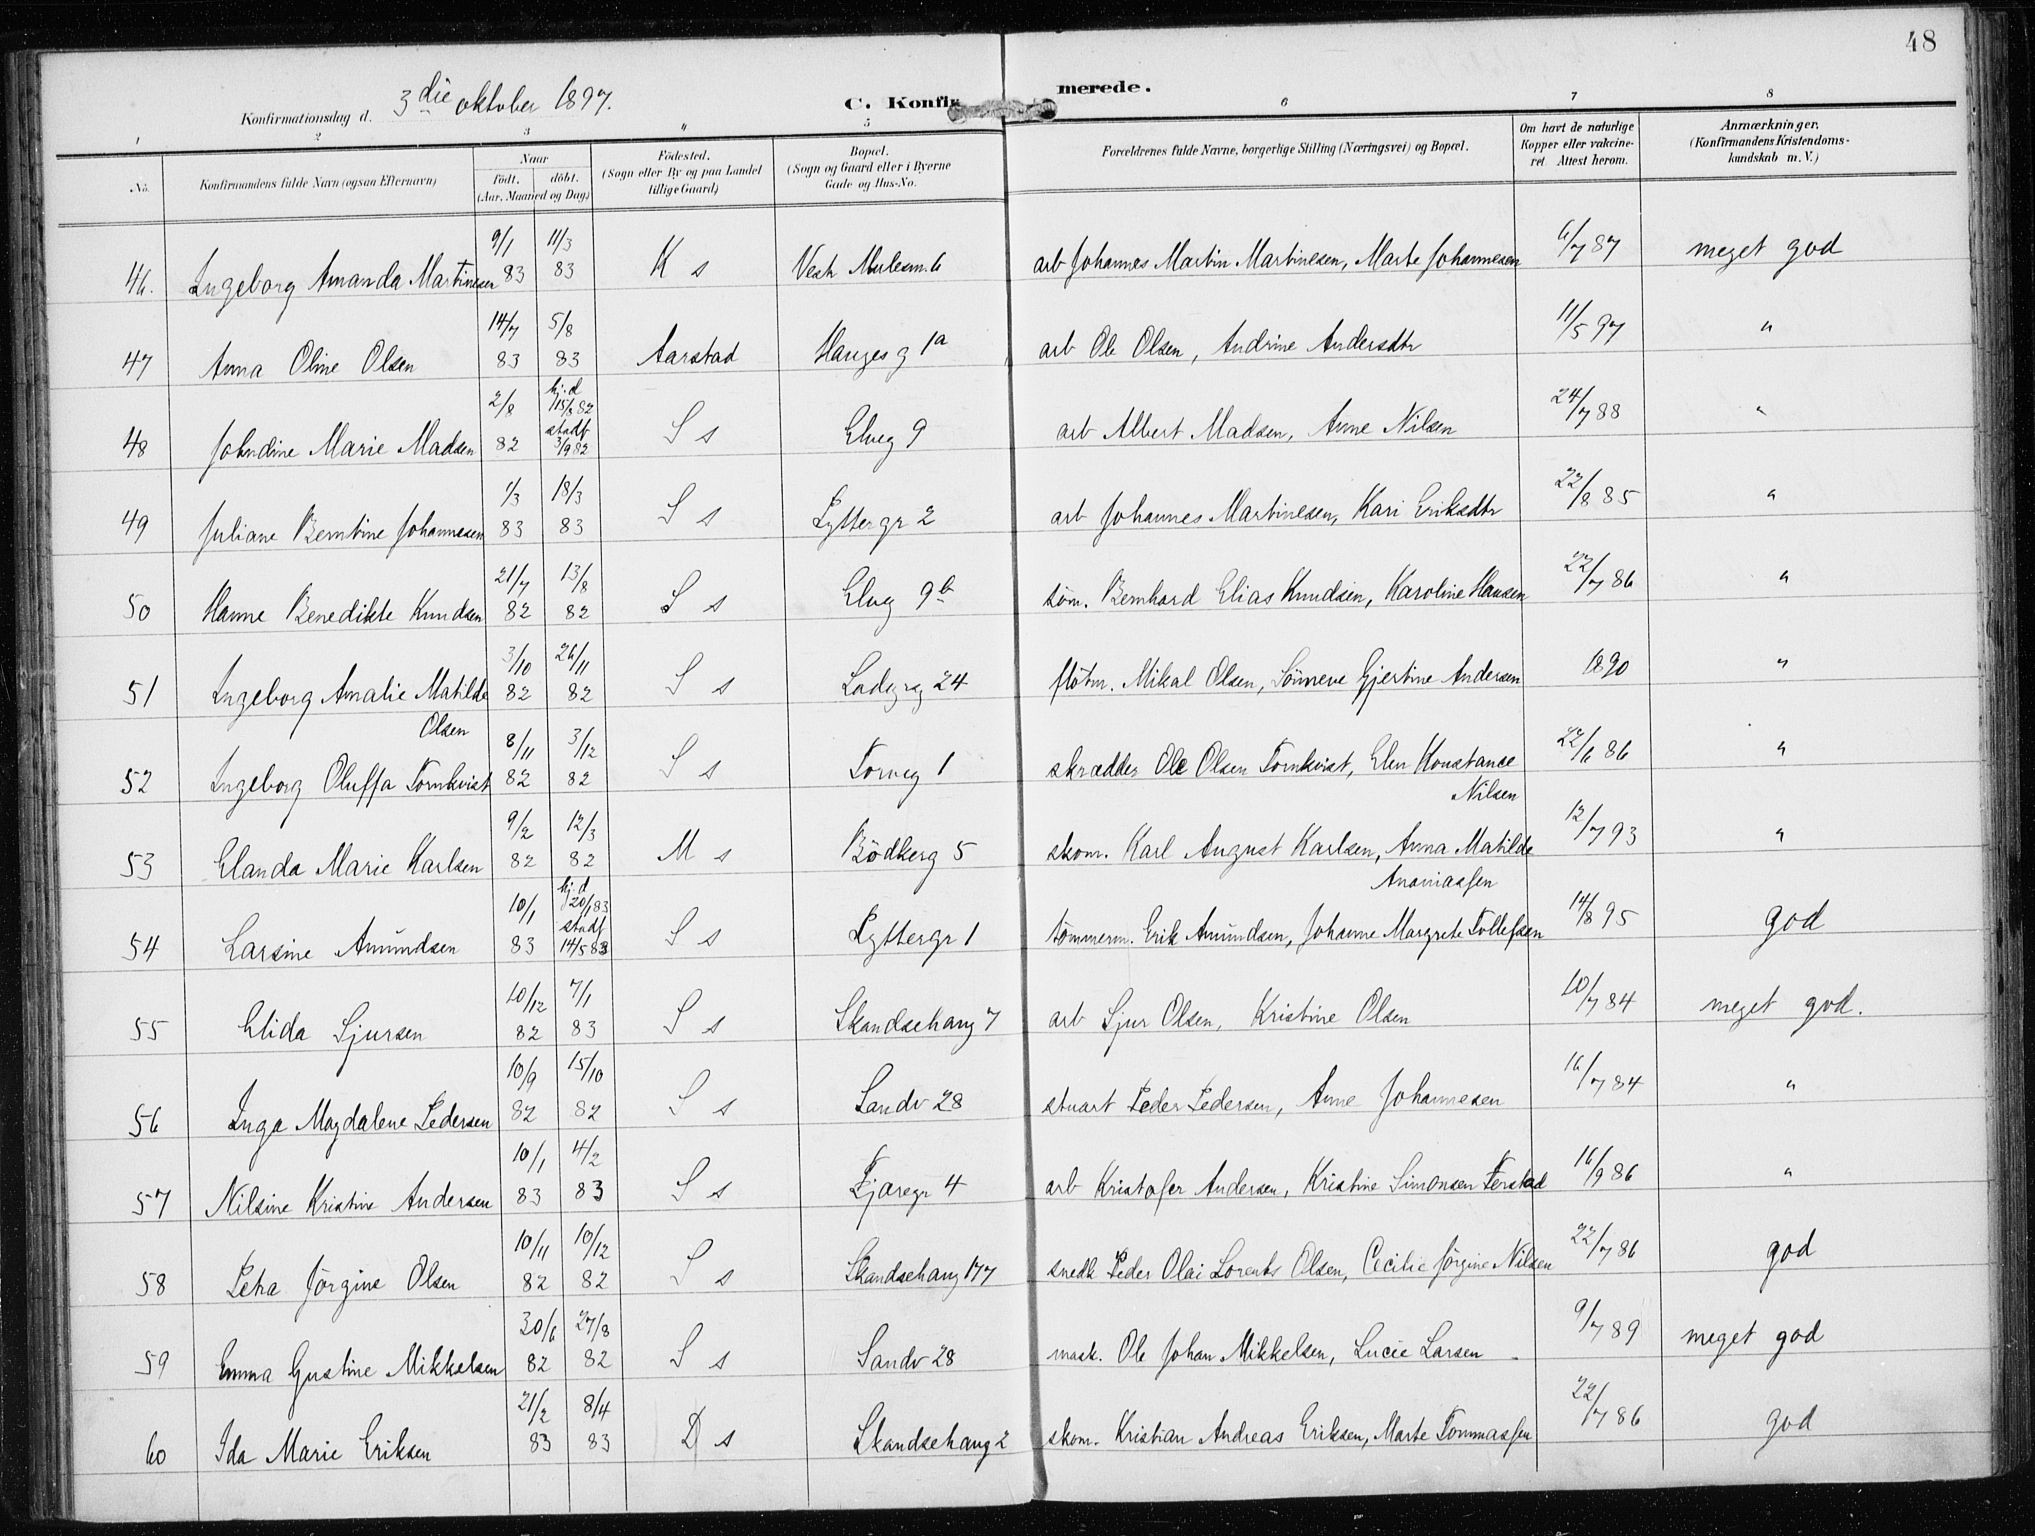 48
Konfirmationsdag d. 3die oktober 1897.
C. Konfirmerede.
1 2 3 4 5 6 7 8
No. Konfirmandens fulde Navn (ogsaa Efternavn) Naar født. døbt. (Aar, Maaned og Dag) Fødested. (Sogn eller By og paa Landet tillige Gaard) Bopæl. (Sogn og Gaard eller i Byerne Gade og Hus-No. Forældrenes fulde Navne, borgerlige Stilling (Næringsvei) og Bopæl. Om havt de naturlige Kopper eller vakcineret. Attest herom. Anmærkninger. (Konfirmandens Kristendomskundskab m. V.)
46. Ingeborg Amanda Martinesen 9/1 83 11/3 83 K s Vestr Mulesm. 6 arb Johannes Martin Martinesen, Marte Johannesen 6/7 87 meget god
47 Anna Oline Olsen 14/7 83 5/8 83 Aarstad Hauges g 1a arb Ole Olsen, Andrine Andersdtr 11/5 97 "
48 Johndine Marie Madsen 2/8 82 hj. d 15/8 82 stadf 3/9 82 S s Elveg 9 arb Albert Madsen, Anne Nilsen 24/7 88 "
49 Juliane Berntine Johannesen 1/3 83 18/3 83 S s Lyttergr 2 arb Johannes Martinesen, Kari Eriksdtr 22/8 85 "
50 Hanne Benedikte Knudsen 21/7 82 13/8 82 S s Elveg 9b søm. Bernhard Elias Knudsen, Karoline Hansen 22/7 86 "
51 Ingeborg Amalie Matilde Olsen 3/10 82 26/11 82 S s Ladegrg 24 fløtm. Mikal Olsen, Sønneve Gjertine Andersen 1890 "
52 Ingeborg Oluffa Tornkvist 8/11 82 3/12 82 S s Torveg 1 skrædder Ole Olsen Tornkvist, Elen Konstance Nilsen 22/6 86 "
53 Elanda Marie Karlsen 9/2 82 12/3 82 M s Bødkerg 5 skom. Karl August Karlsen, Anna Matilde Ananiassen 12/7 93 "
54 Larsine Amundsen 10/1 83 hj. d 20/1 83 stadf 14/5 83 S s Lyttergr 1 tømmerm. Erik Amundsen, Johanne Margrete Tollefsen 14/8 95 god
55 Elida Sjursen 10/12 82 7/1 83 S s Skandsehaug 7 arb Sjur Olsen, Kristine Olsen 10/7 84 meget god.
56 Inga Magdalene Pedersen 10/9 82 15/10 82 S s Sandv 28 stuart Peder Pedersen, Anne Johannesen 16/7 84 "
57 Nilsine Kristine Andersen 10/1 83 4/2 83 S s Fjæregr 4 arb Kristofer Andersen, Kristine Simonsen Ferstad 16/9 86 "
58 Petra Jørgine Olsen 10/11 82 10/12 82 S s Skandsehaug 177 snedk Peder Olai Lorents Olsen, Cecilie Jørgine Nilsen 22/7 86 god
59 Emma Gustine Mikkelsen 30/6 82 27/8 82 S s Sandv 28 mask. Ole Johan Mikkelsen, Lucie Larsen 9/7 89 meget god
60 Ida Marie Eriksen 21/2 83 8/4 83 D s Skandsehaug 2 skom. Kristian Andreas Eriksen, Marte Tommassen 22/7 86 god